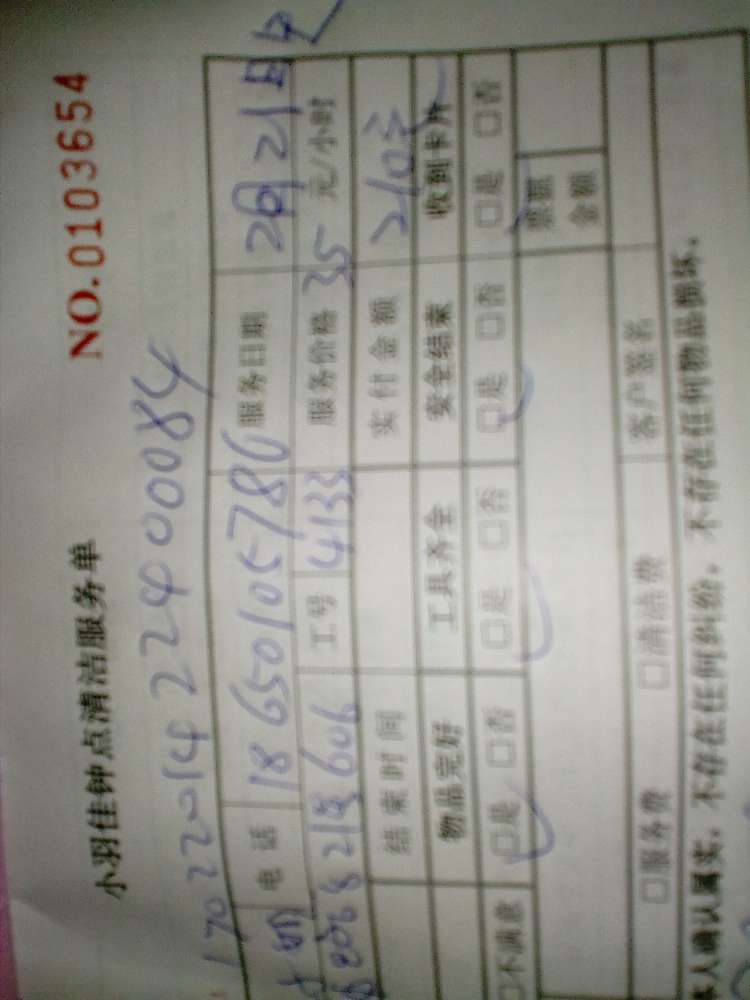 NO.0103654
小羽佳钟点清洁服务单
17022014224 00084
电话 18650105786 服务日期 2月21日
606 工号 4133 服务价格 35 元/小时
结束时间 实付金额 210元
物品完好 工具齐全 安全结束 收到卡片
□不满意 □是 □否 □是 □否 □是 □否 □是 □否
金额
□服务费 □清洁费 客户签名
本人确认属实，不存在任何纠纷，不存在任何物品损坏。